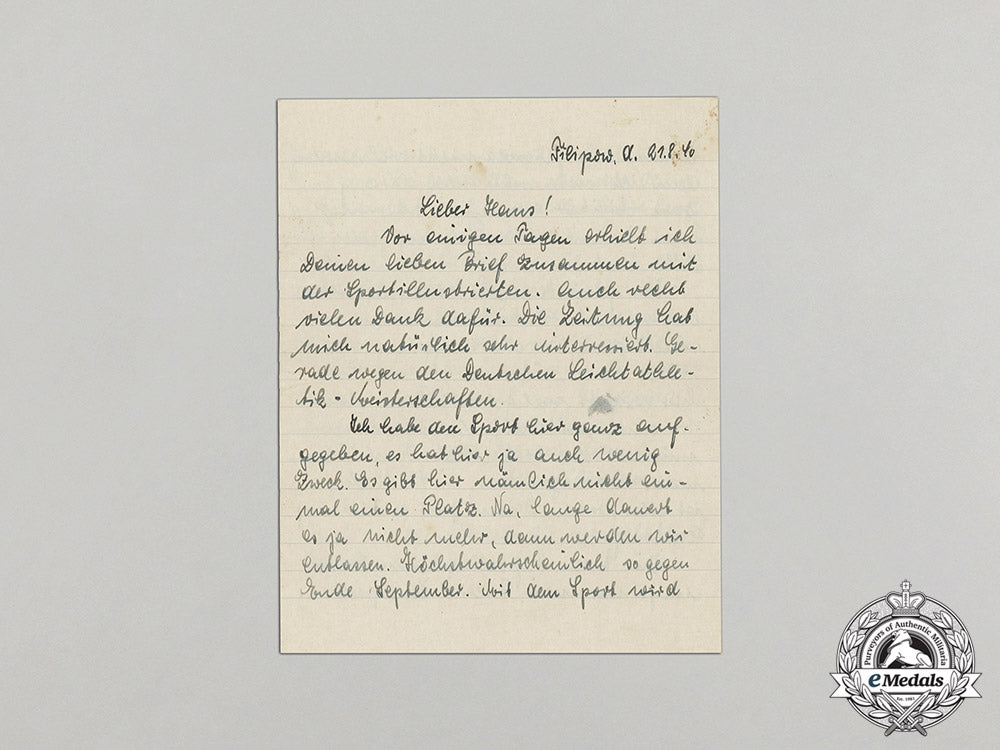 Filipow, d. 21.8.40
Lieber Hans!
Vor einigen Tagen erhielt ich
Deinen lieben Brief zusammen mit
der Sportillustrierten. Auch recht
vielen Dank dafür. Die Zeitung hat
mich natürlich sehr interressiert. Ge-
rade wegen den Deutschen Leichtathle-
tik-Meisterschaften.
Ich habe den Sport hier ganz auf-
gegeben, es hat hier ja auch wenig
Zweck. Es gibt hier nämlich nicht ein-
mal einen Platz. Na, lange dauert
es ja nicht mehr, dann werden wir
entlassen. Höchstwahrscheinlich so gegen
Ende September. Mit dem Sport wird
Purveyors of Authentic Militaria
eMedals